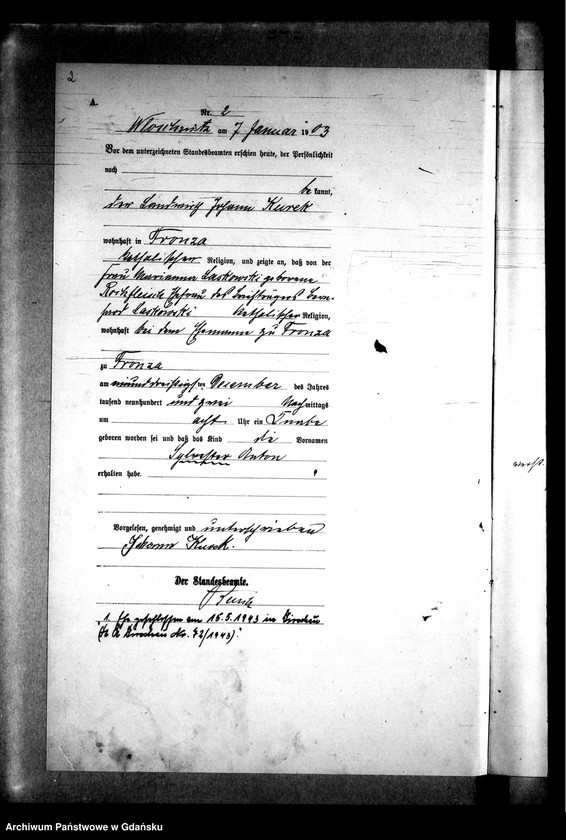 2
A.
Nr. 2
am 7 Januar 1903
Vor dem unterzeichneten Standesbeamten erschien heute, der Persönlichkeit
nach
be kannt,
der Landwirth Johann Kurek
wohnhaft in Fronza
katholischer Religion, und zeigte an, daß von der
Frau Marianna Laskowski geborene
Ehefrau des Briefträgers
Laskowski katholischer Religion,
wohnhaft bei dem Ehemanne zu Fronza
zu Fronza
am einunddreißigsten Dezember des Jahres
tausend neunhundert und zwei Nachmittags
um acht Uhr ein Knabe
geboren worden sei und daß das Kind die Vornamen
Sylvester Anton
erhalten habe.
Vorgelesen, genehmigt und unterschrieben
Johann Kurek.
Der Standesbeamte.
1. Ehe geschlossen am 15.5.1943 in Dirschau
(St. A. Dirschau No. 72/1943).
Archiwum Państwowe w Gdańsku